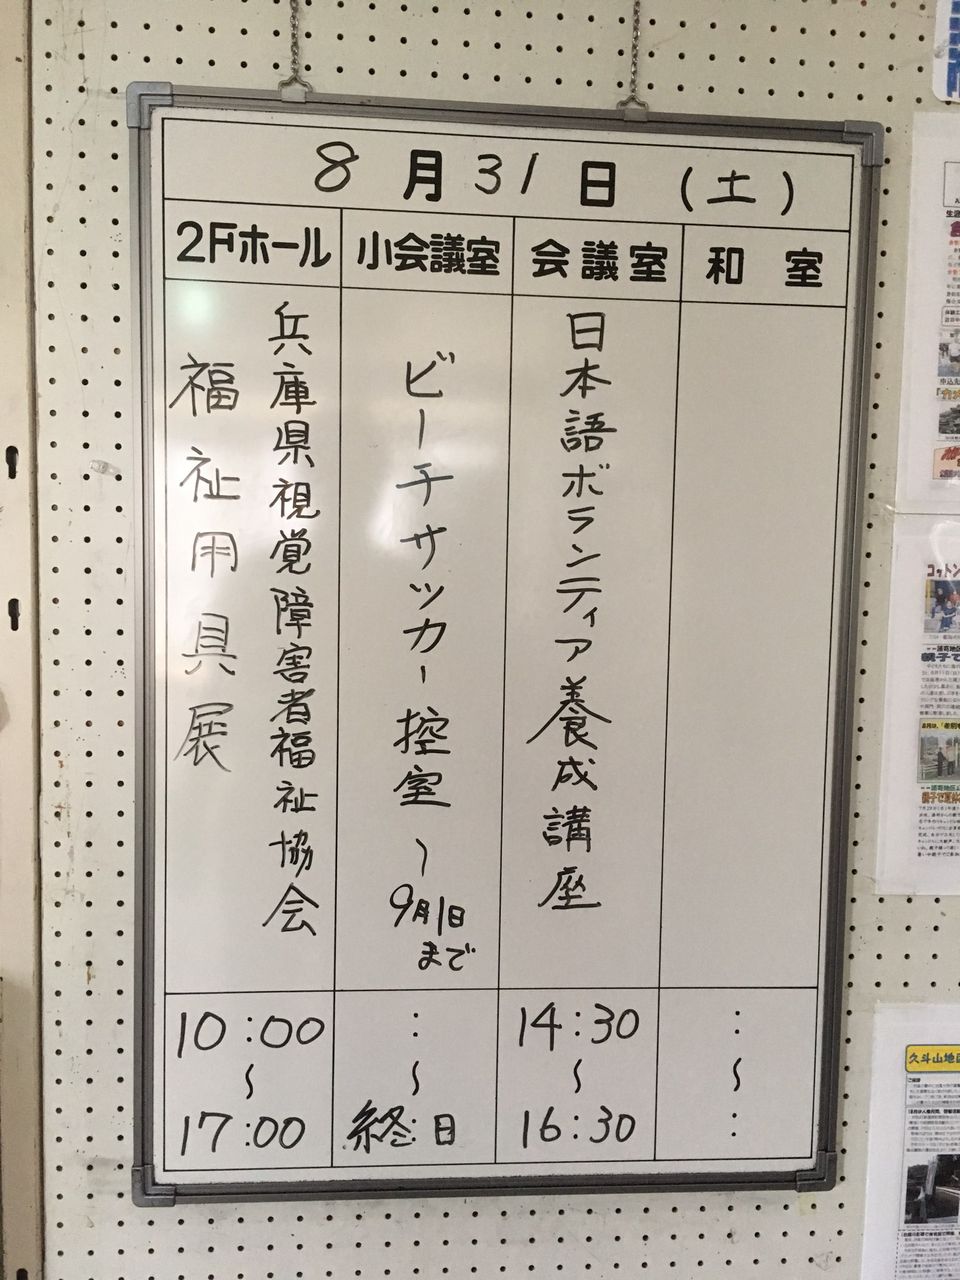 8月31日(土)
2Fホール
小会議室
会議室
和室
兵庫県視覚障害者福祉協会
福祉用具展
ビーチサッカー控室〜
9月1日
まで
日本語ボランティア養成講座
10:00
〜
17:00
:
〜
終:日
14:30
〜
16:30
:
〜
:
コットン
久斗山地区